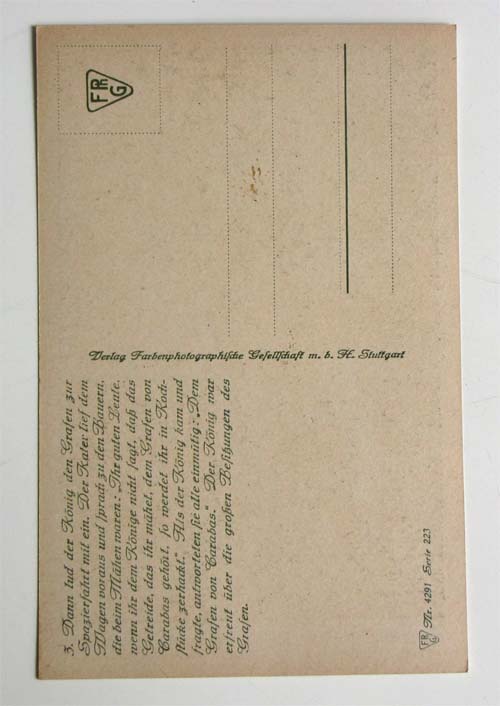 3. Dann lud der König den Grafen zur
Spazierfahrt mit ein. Der Kater lief dem
Wagen voraus und sprach zu den Bauern,
die beim Mähen waren: „Ihr guten Leute,
wenn ihr dem Könige nicht sagt, daß das
Getreide, das ihr mähet, dem Grafen von
Carabas gehört, so werdet ihr in Koch-
stücke zerhackt.“ Als der König kam und
fragte, antworteten sie alle einmütig: „Dem
Grafen von Carabas.“ Der König war
erfreut über die großen Besitzungen des
Grafen.
Verlag Farbenphotographische Gesellschaft m. b. H. Stuttgart
FPhG
FPhG Nr. 4291 Serie 223